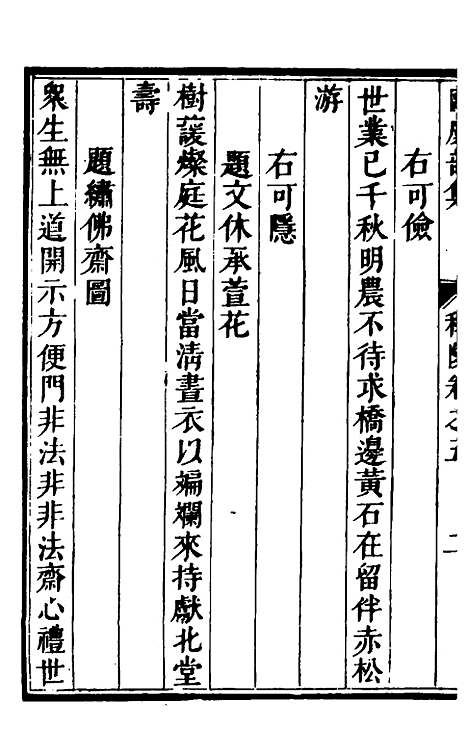 右可儉
世業已千秋明農不待求橋邊黃石在留伴赤松
游
右可隱
題文休承萱花
樹諼燦庭花風日當清晝衣以斒斕來持獻北堂
壽
題繡佛齋圖
眾生無上道開示方便門非法非非法齋心禮世